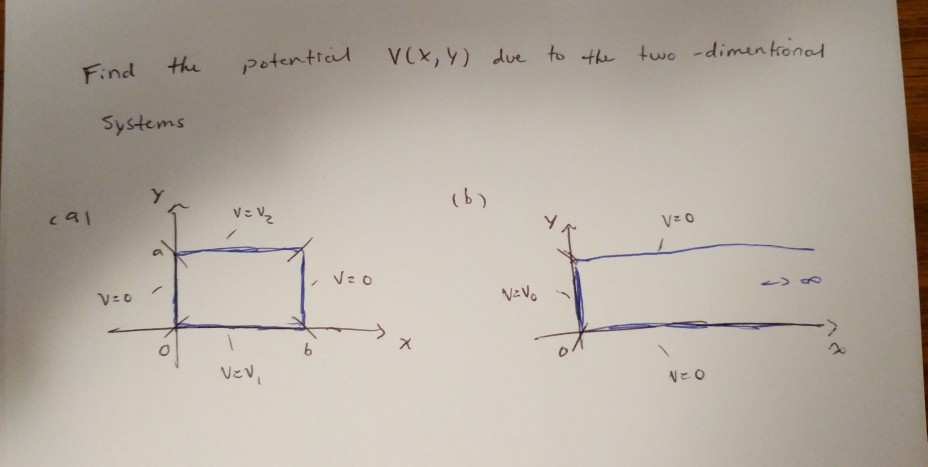 Find the potential V(x,y) due to the two-dimentional
systems
(a) y V=V₂
a
V=0 V=0
0 b x
V=V₁
(b)
y V=0
V=V₀ ↔ ∞
0 x
V=0